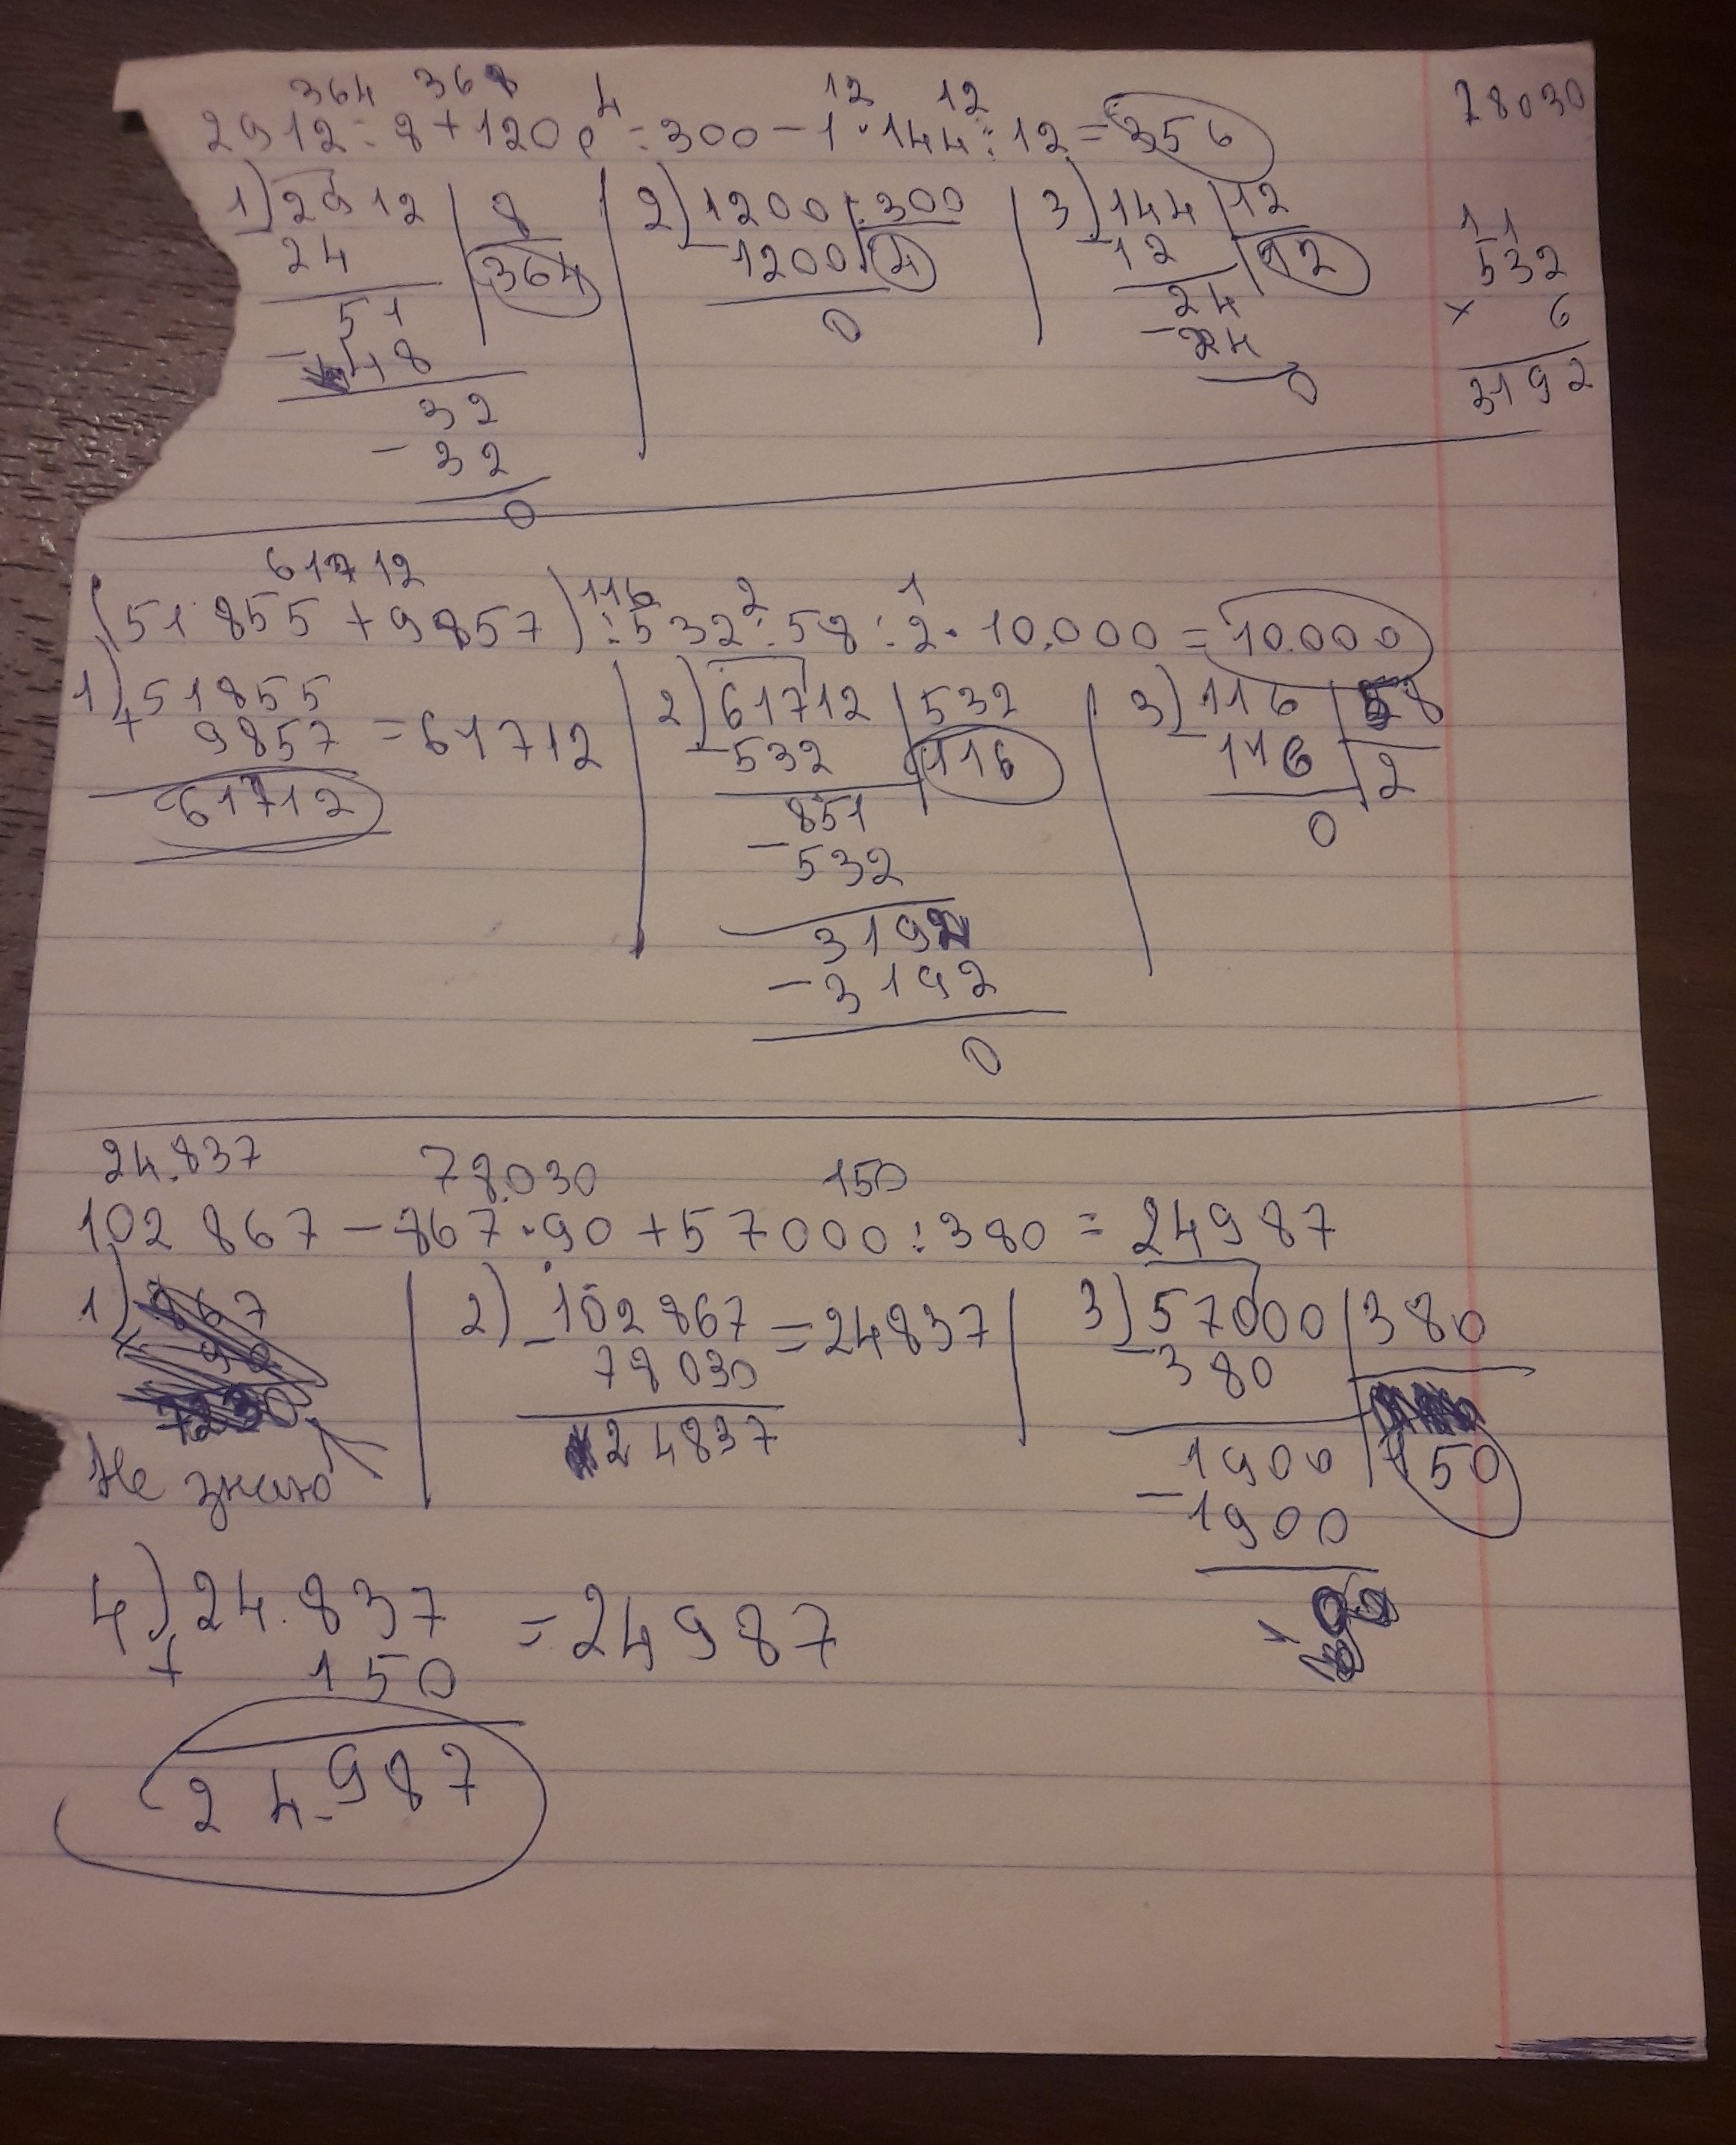 364 368 4 12 12
2912 : 8 + 1200 : 300 - 1 · 144 : 12 = 356
28030
1) 2912 | 8
24 | 364
51
- 48
32
- 32
0
2) 1200 : 300
- 1200 | 4
0
3) 144 | 12
- 12 | 12
24
- 24
0
1 1
532
× 6
3192
61712 116 2 1
(51 855 + 9857) : 532 : 58 : 2 · 10.000 = 10.000
1) 51855
+ 9857 = 61712
61712
2) 61712 | 532
- 532 | 116
851
- 532
3192
- 3192
0
3) 116 | 58
- 116 | 2
0
24.837 78.030 150
102 867 - 867 · 90 + 57000 : 380 = 24987
1) 867
× 90
Не знаю
2) - 102 867 = 24837
78 030
24837
3) 57000 | 380
- 380 | 150
1900
- 1900
4) 24.837 = 24987
+ 150
24.987